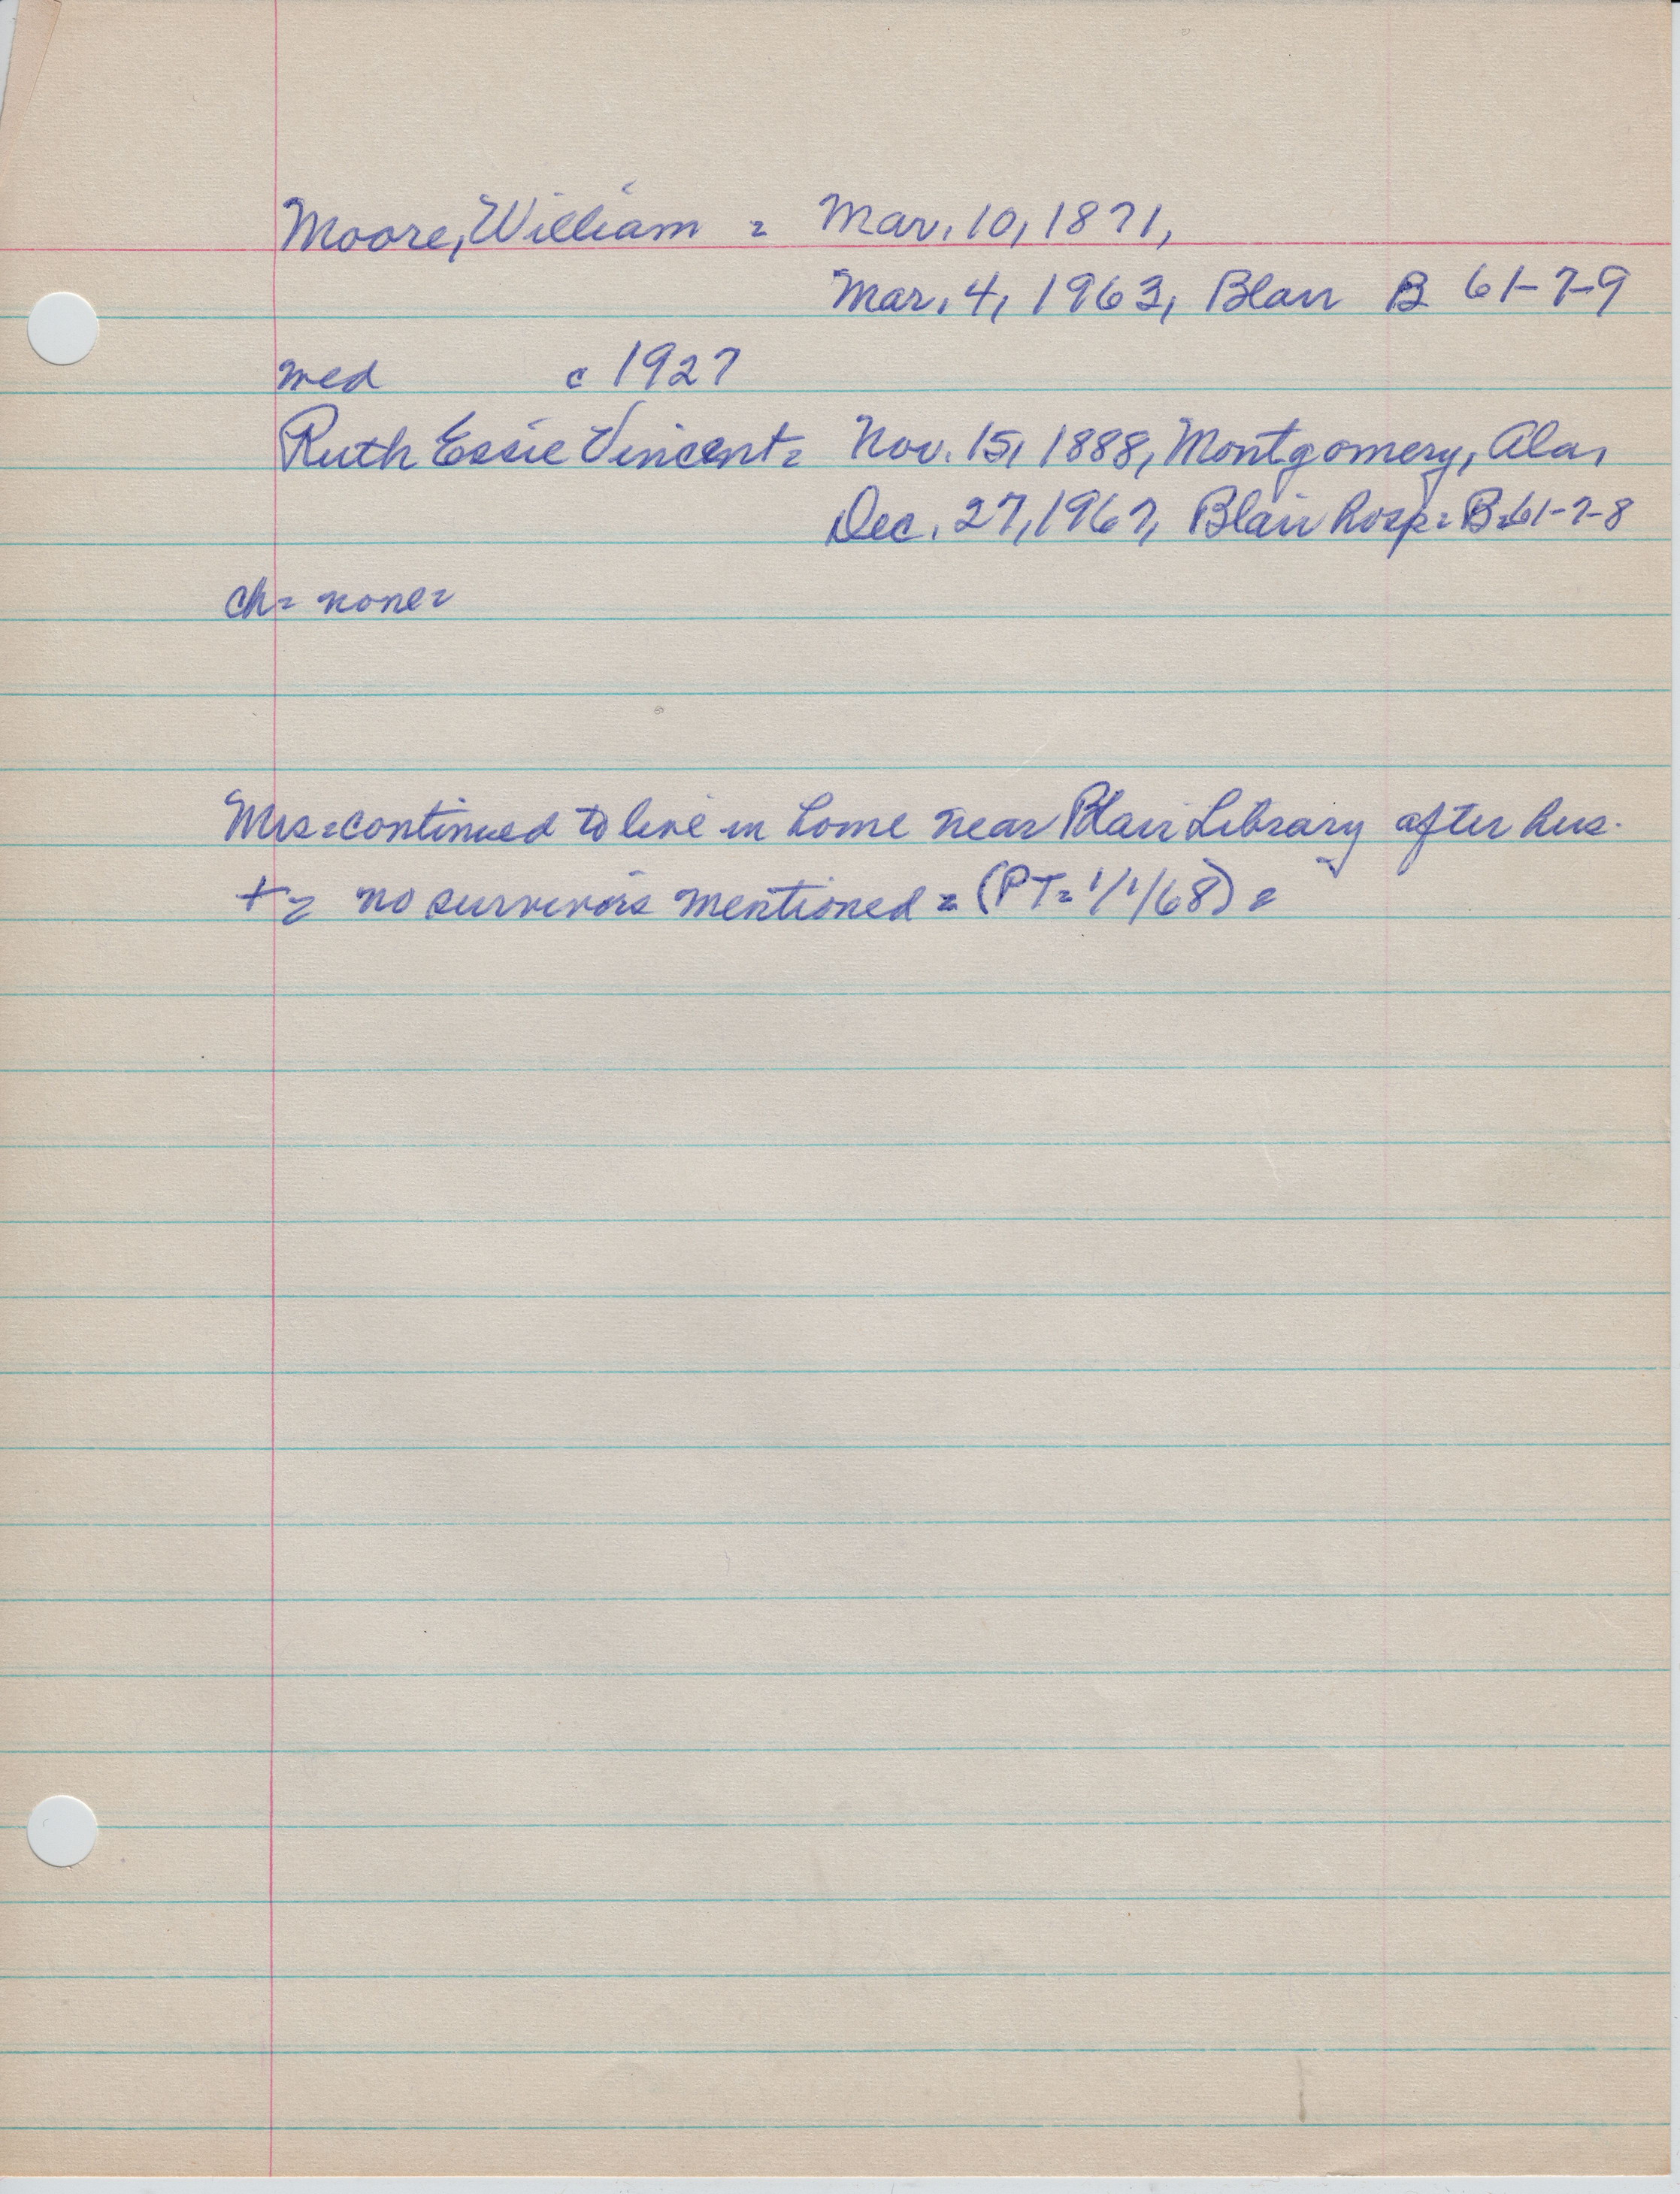 Moore, William = Mar. 10, 1871,
Mar. 4, 1963, Blair B 61-7-9
med c 1927
Ruth Essie Vincent = Nov. 15, 1888, Montgomery, Ala,
Dec. 27, 1967, Blair hosp = B=61-7-8
ch = none =
Mrs = continued to live in home near Blair Library after hus.
+ = no survivors mentioned = (PT = 1/1/68) =